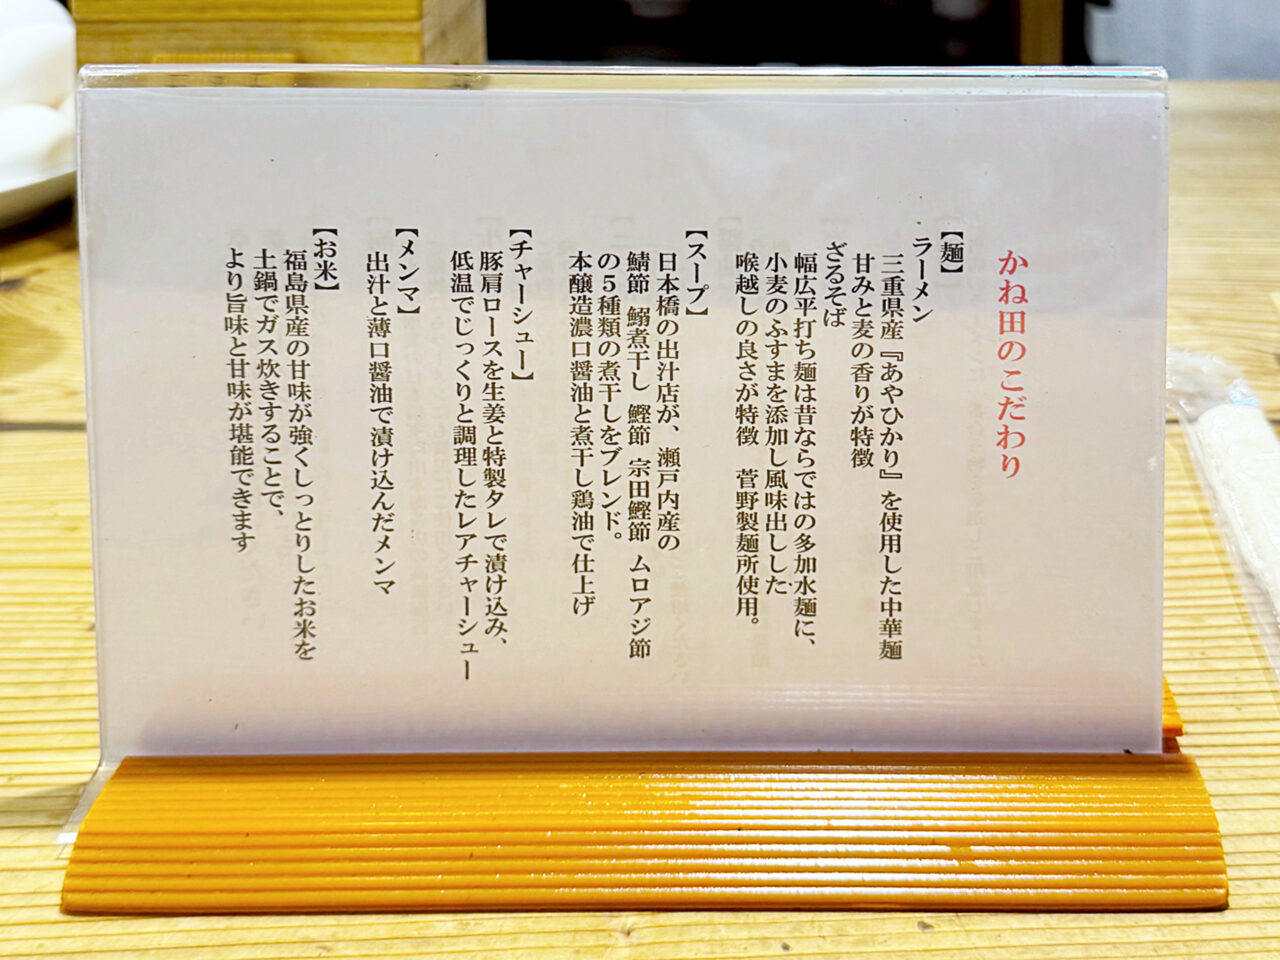 かね田のこだわり
【麺】
ラーメン
三重県産『あやひかり』を使用した中華麺
甘みと麦の香りが特徴
ざるそば
幅広平打ち麺は昔ならではの多加水麺に、
小麦のふすまを添加し風味出しした
喉越しの良さが特徴 菅野製麺所使用。
【スープ】
日本橋の出汁店が、瀬戸内産の
鯖節 鰯煮干し 鰹節 宗田鰹節 ムロアジ節
の5種類の煮干しをブレンド。
本醸造濃口醤油と煮干し鶏油で仕上げ
【チャーシュー】
豚肩ロースを生姜と特製タレで漬け込み、
低温でじっくりと調理したレアチャーシュー
【メンマ】
出汁と薄口醤油で漬け込んだメンマ
【お米】
福島県産の甘味が強くしっとりしたお米を
土鍋でガス炊きすることで、
より旨味と甘味が堪能できます